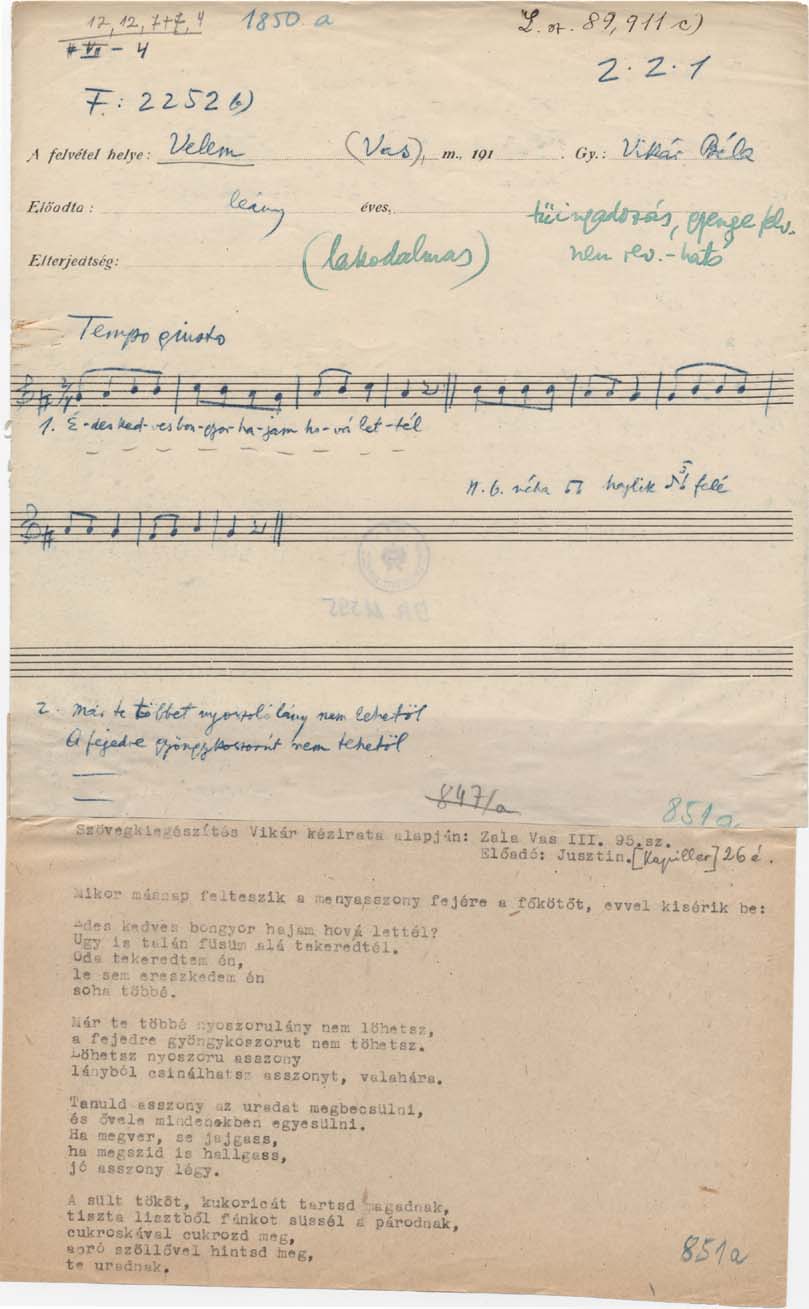 12, 12, 7+7, 4 1850 a L. sz. 89,911 c)
VII - 4
2.2.1
F: 2252 b)
A felvétel helye: Velem (Vas), m., 191 . Gy.: Vikár Béla
Előadta: leány éves, tűingadozás, gyenge felv.
Elterjedtség: (lakodalmas) nem rev.-ható
Tempo giusto
1. É-des ked-ves bon-gyor ha-jam ho-vá let-tél
N.b. néha hajlik felé
2. Már te többet nyoszolólány nem lehetöl
A fejedre gyöngykoszorút nem tehetöl
847/a 851a
Szövegkiegészítés Vikár kézirata alapján: Zala Vas III. 95.sz.
Előadó: Jusztin.[Kapiller] 26 é.
Mikor másnap felteszik a menyasszony fejére a főkötőt, evvel kisérik be:
Édes kedves bongyor hajam hová lettél?
Ugy is talán füsüm alá tekeredtél.
Oda tekeredtem én,
le sem ereszkedem én
soha többé.
Már te többé nyoszorulány nem löhetsz,
a fejedre gyöngykoszorut nem töhetsz.
Löhetsz nyoszoru asszony
lányból csinálhatsz asszonyt, valahára.
Tanuld asszony az uradat megbecsülni,
és ővele mindenekben egyesülni.
Ha megver, se jajgass,
ha megszid is hallgass,
jó asszony légy.
A sült tököt, kukoricát tartsd magadnak,
tiszta lisztből fánkot süssél a párodnak,
cukroskával cukrozd meg,
apró szöllővel hintsd meg,
te uradnak.
851a